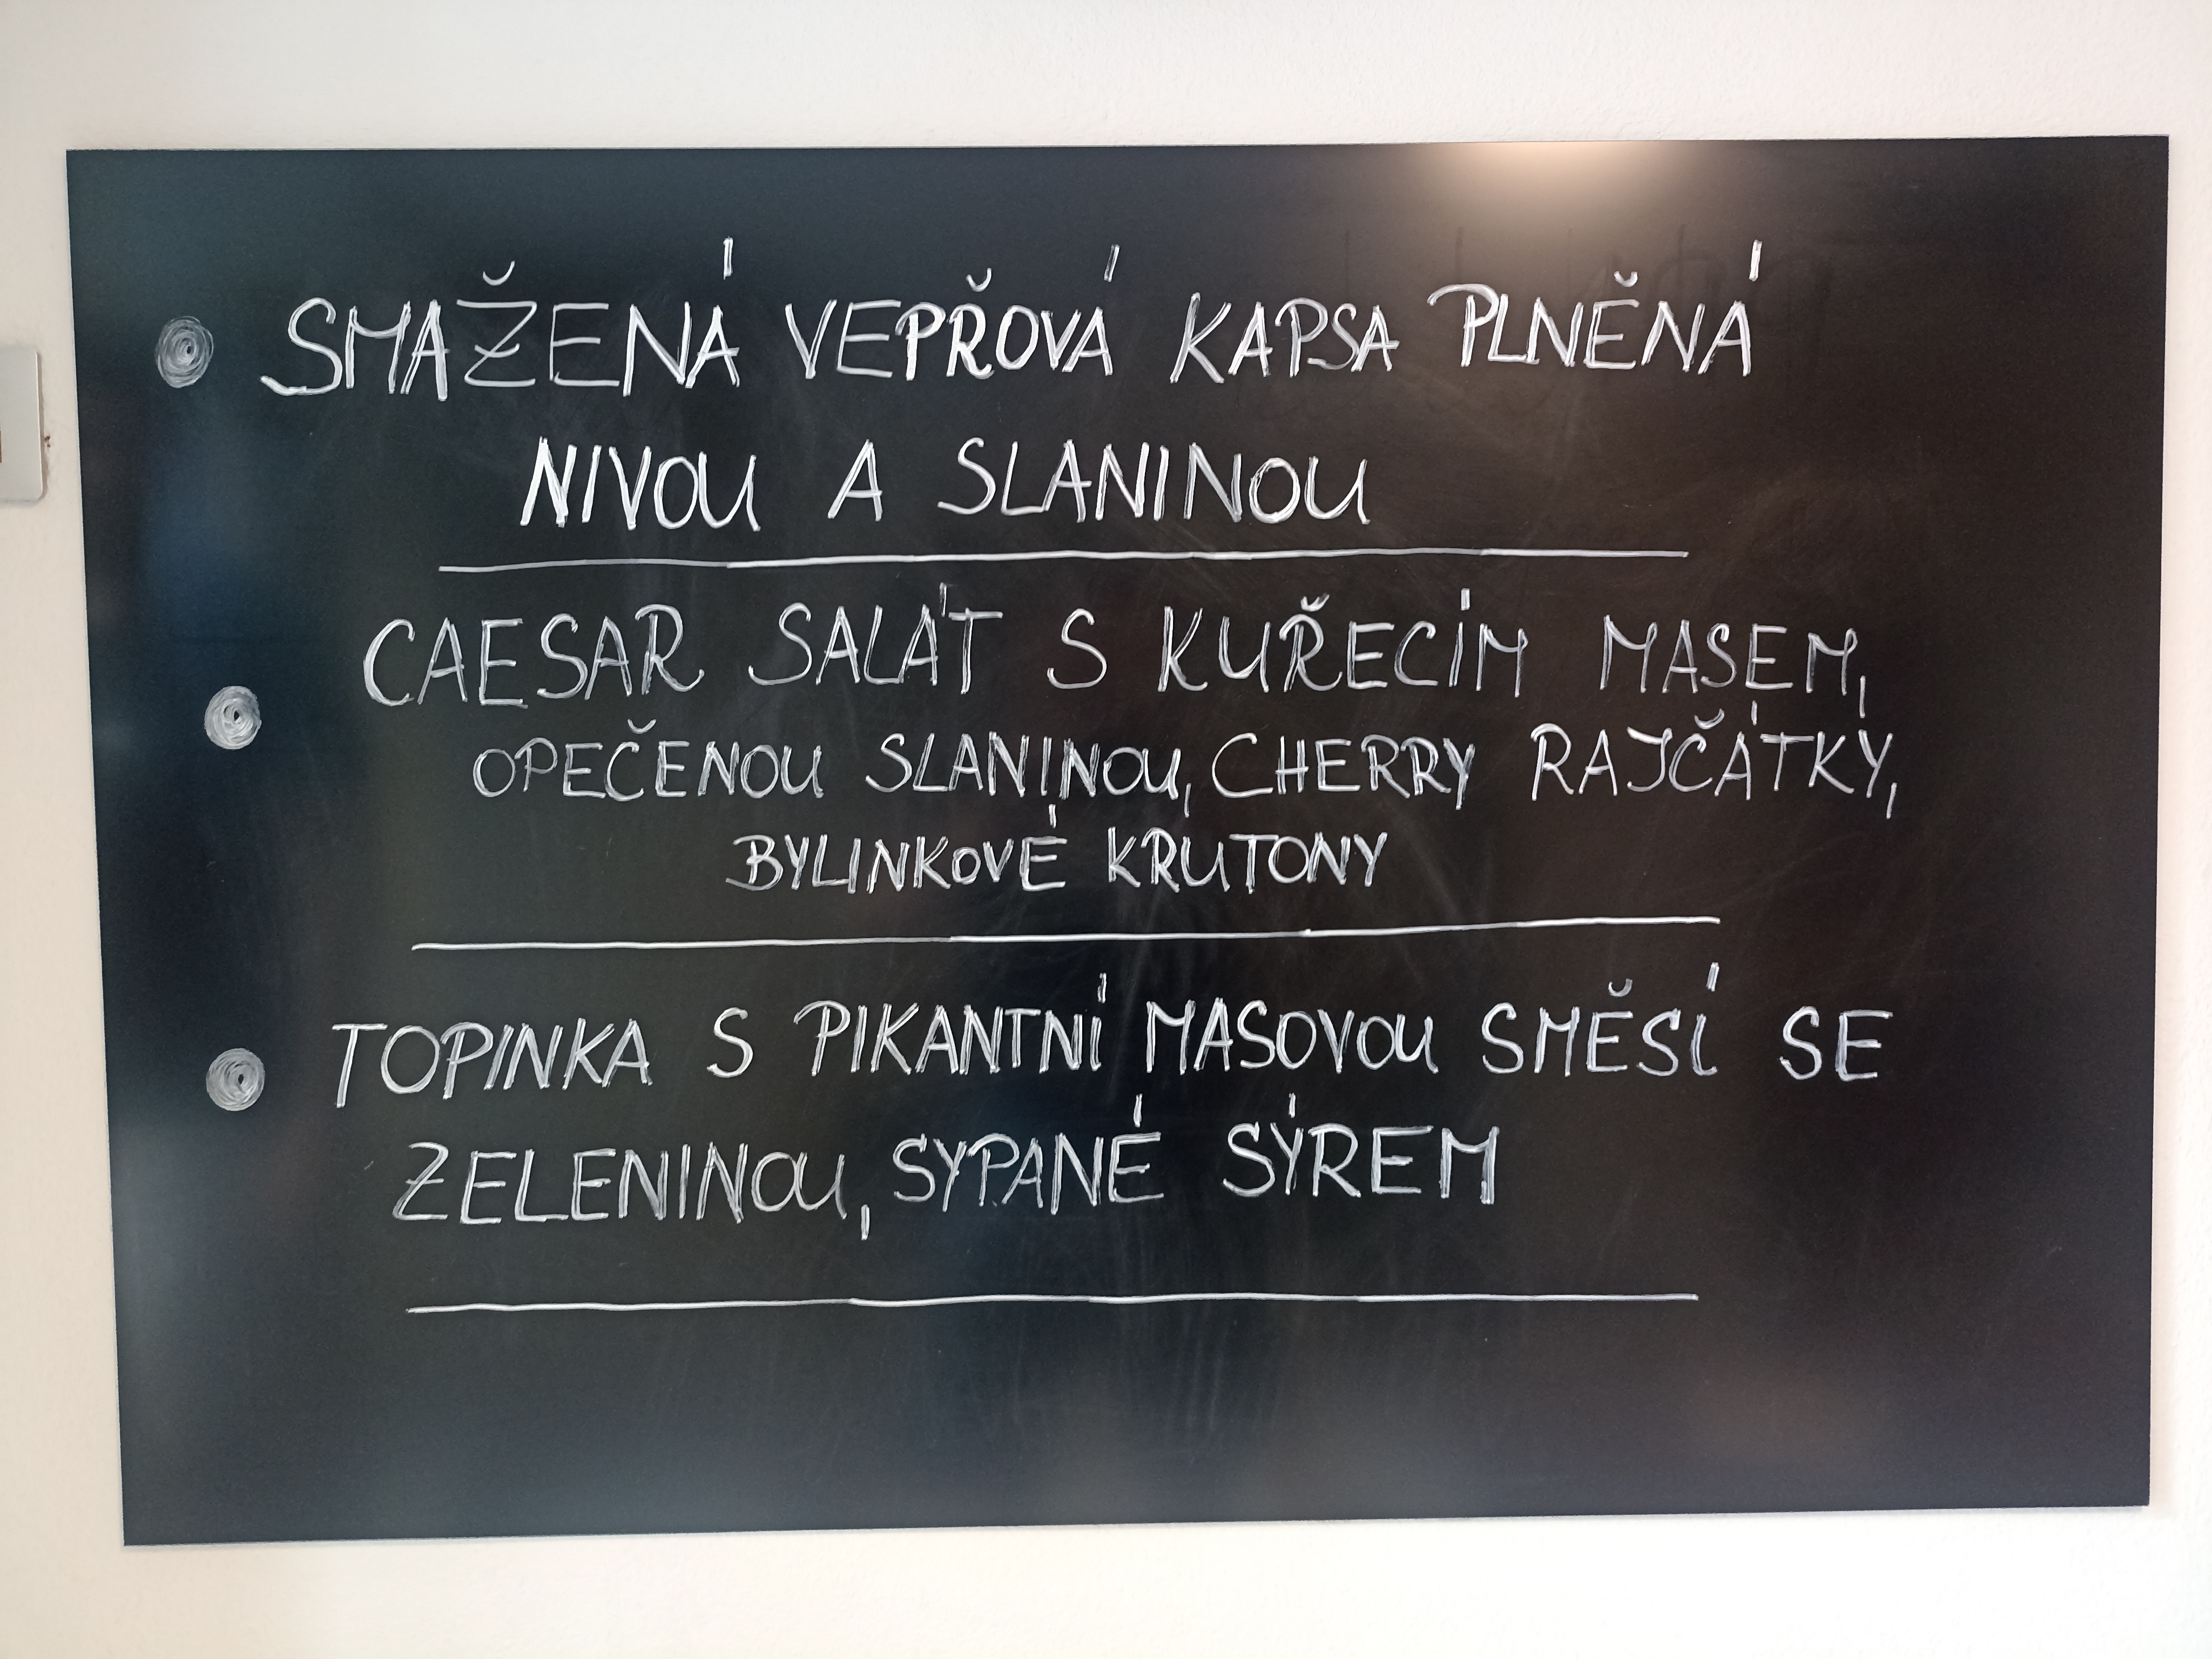 SMAŽENÁ VEPŘOVÁ KAPSA PLNĚNÁ
NIVOU A SLANINOU
CAESAR SALÁT S KUŘECÍM MASEM,
OPEČENOU SLANINOU, CHERRY RAJČÁTKY,
BYLINKOVÉ KRUTONY
TOPINKA S PIKANTNÍ MASOVOU SMĚSÍ SE
ZELENINOU, SYPANÉ SÝREM